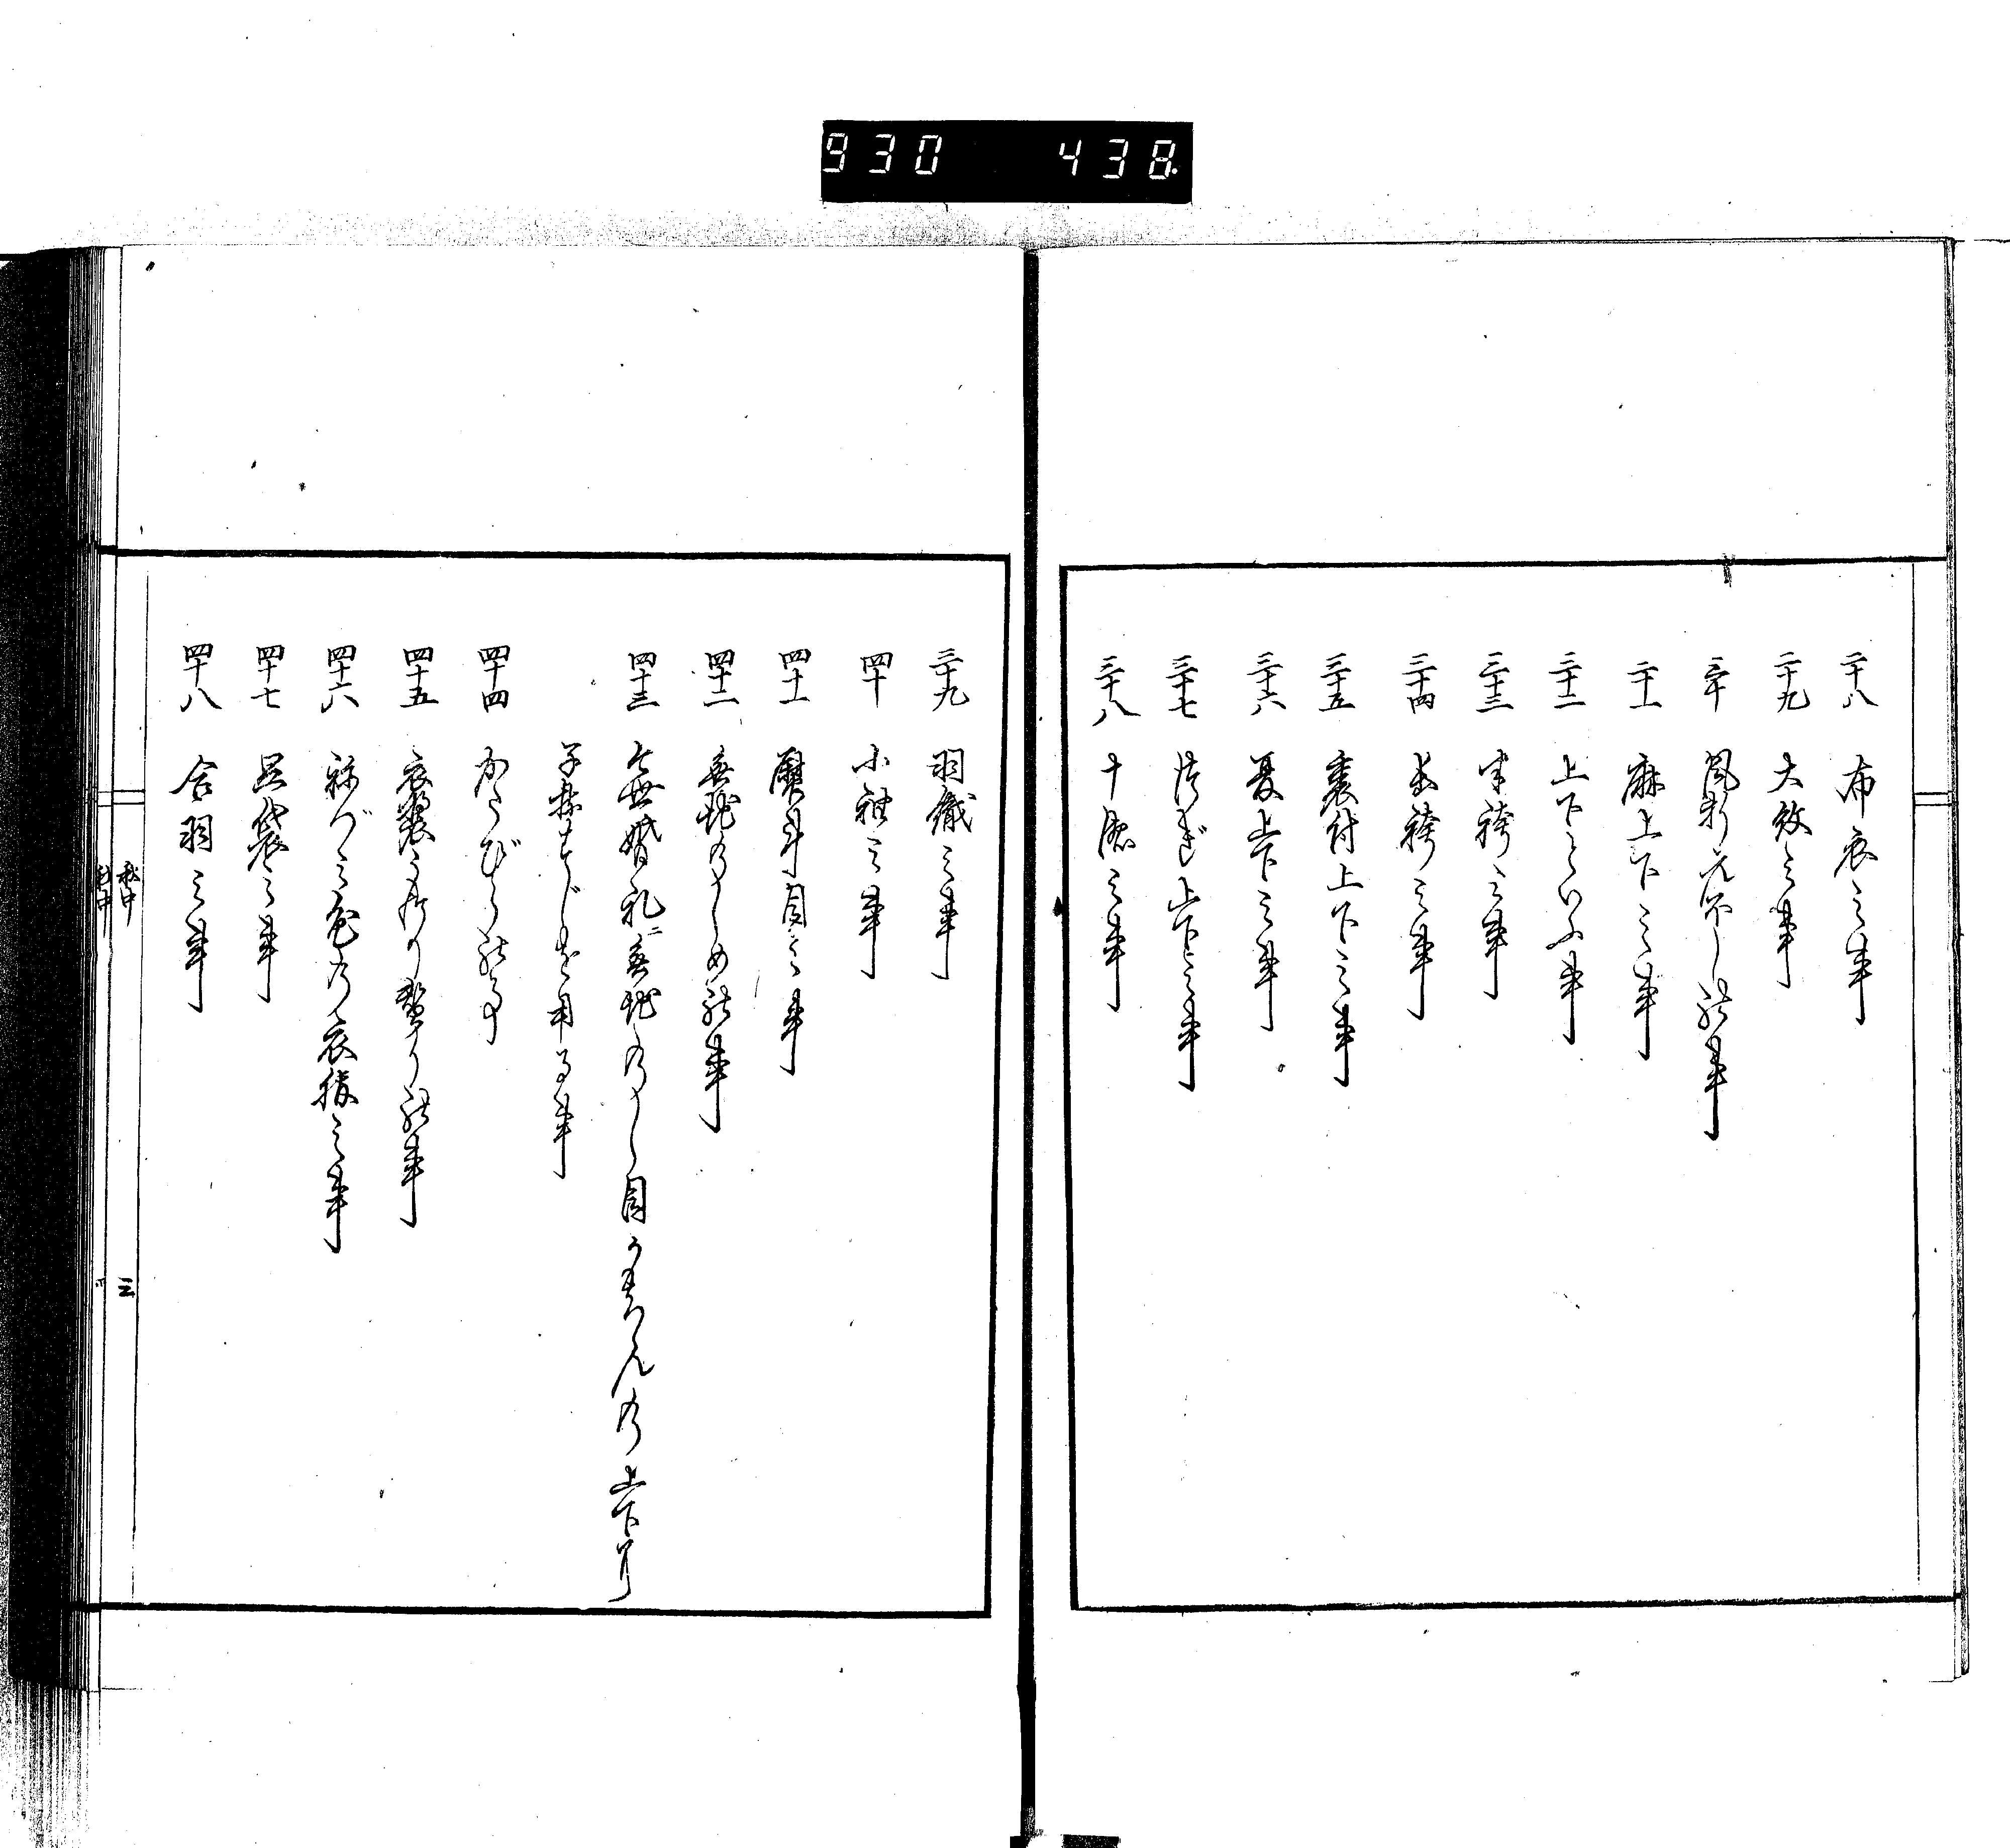 930 438
二十八 布衣之事
二十九 大紋之事
三十 風折烏帽子の事
三十一 麻上下之事
三十二 上下といふ事
三十三 半袴之事
三十四 長袴之事
三十五 裏付上下之事
三十六 夏上下之事
三十七 つぎ上下之事
三十八 十徳之事
三十九 羽織之事
四十 小袖之事
四十一 熨斗目之事
四十二 無地のしめの事
四十三 今世婚礼ニ無地のし目うちんの上下
を用る事
四十四 かたびらの事
四十五 衣裳の事
四十六 ねづミ色の衣服之事
四十七 足袋之事
四十八 合羽之事
三